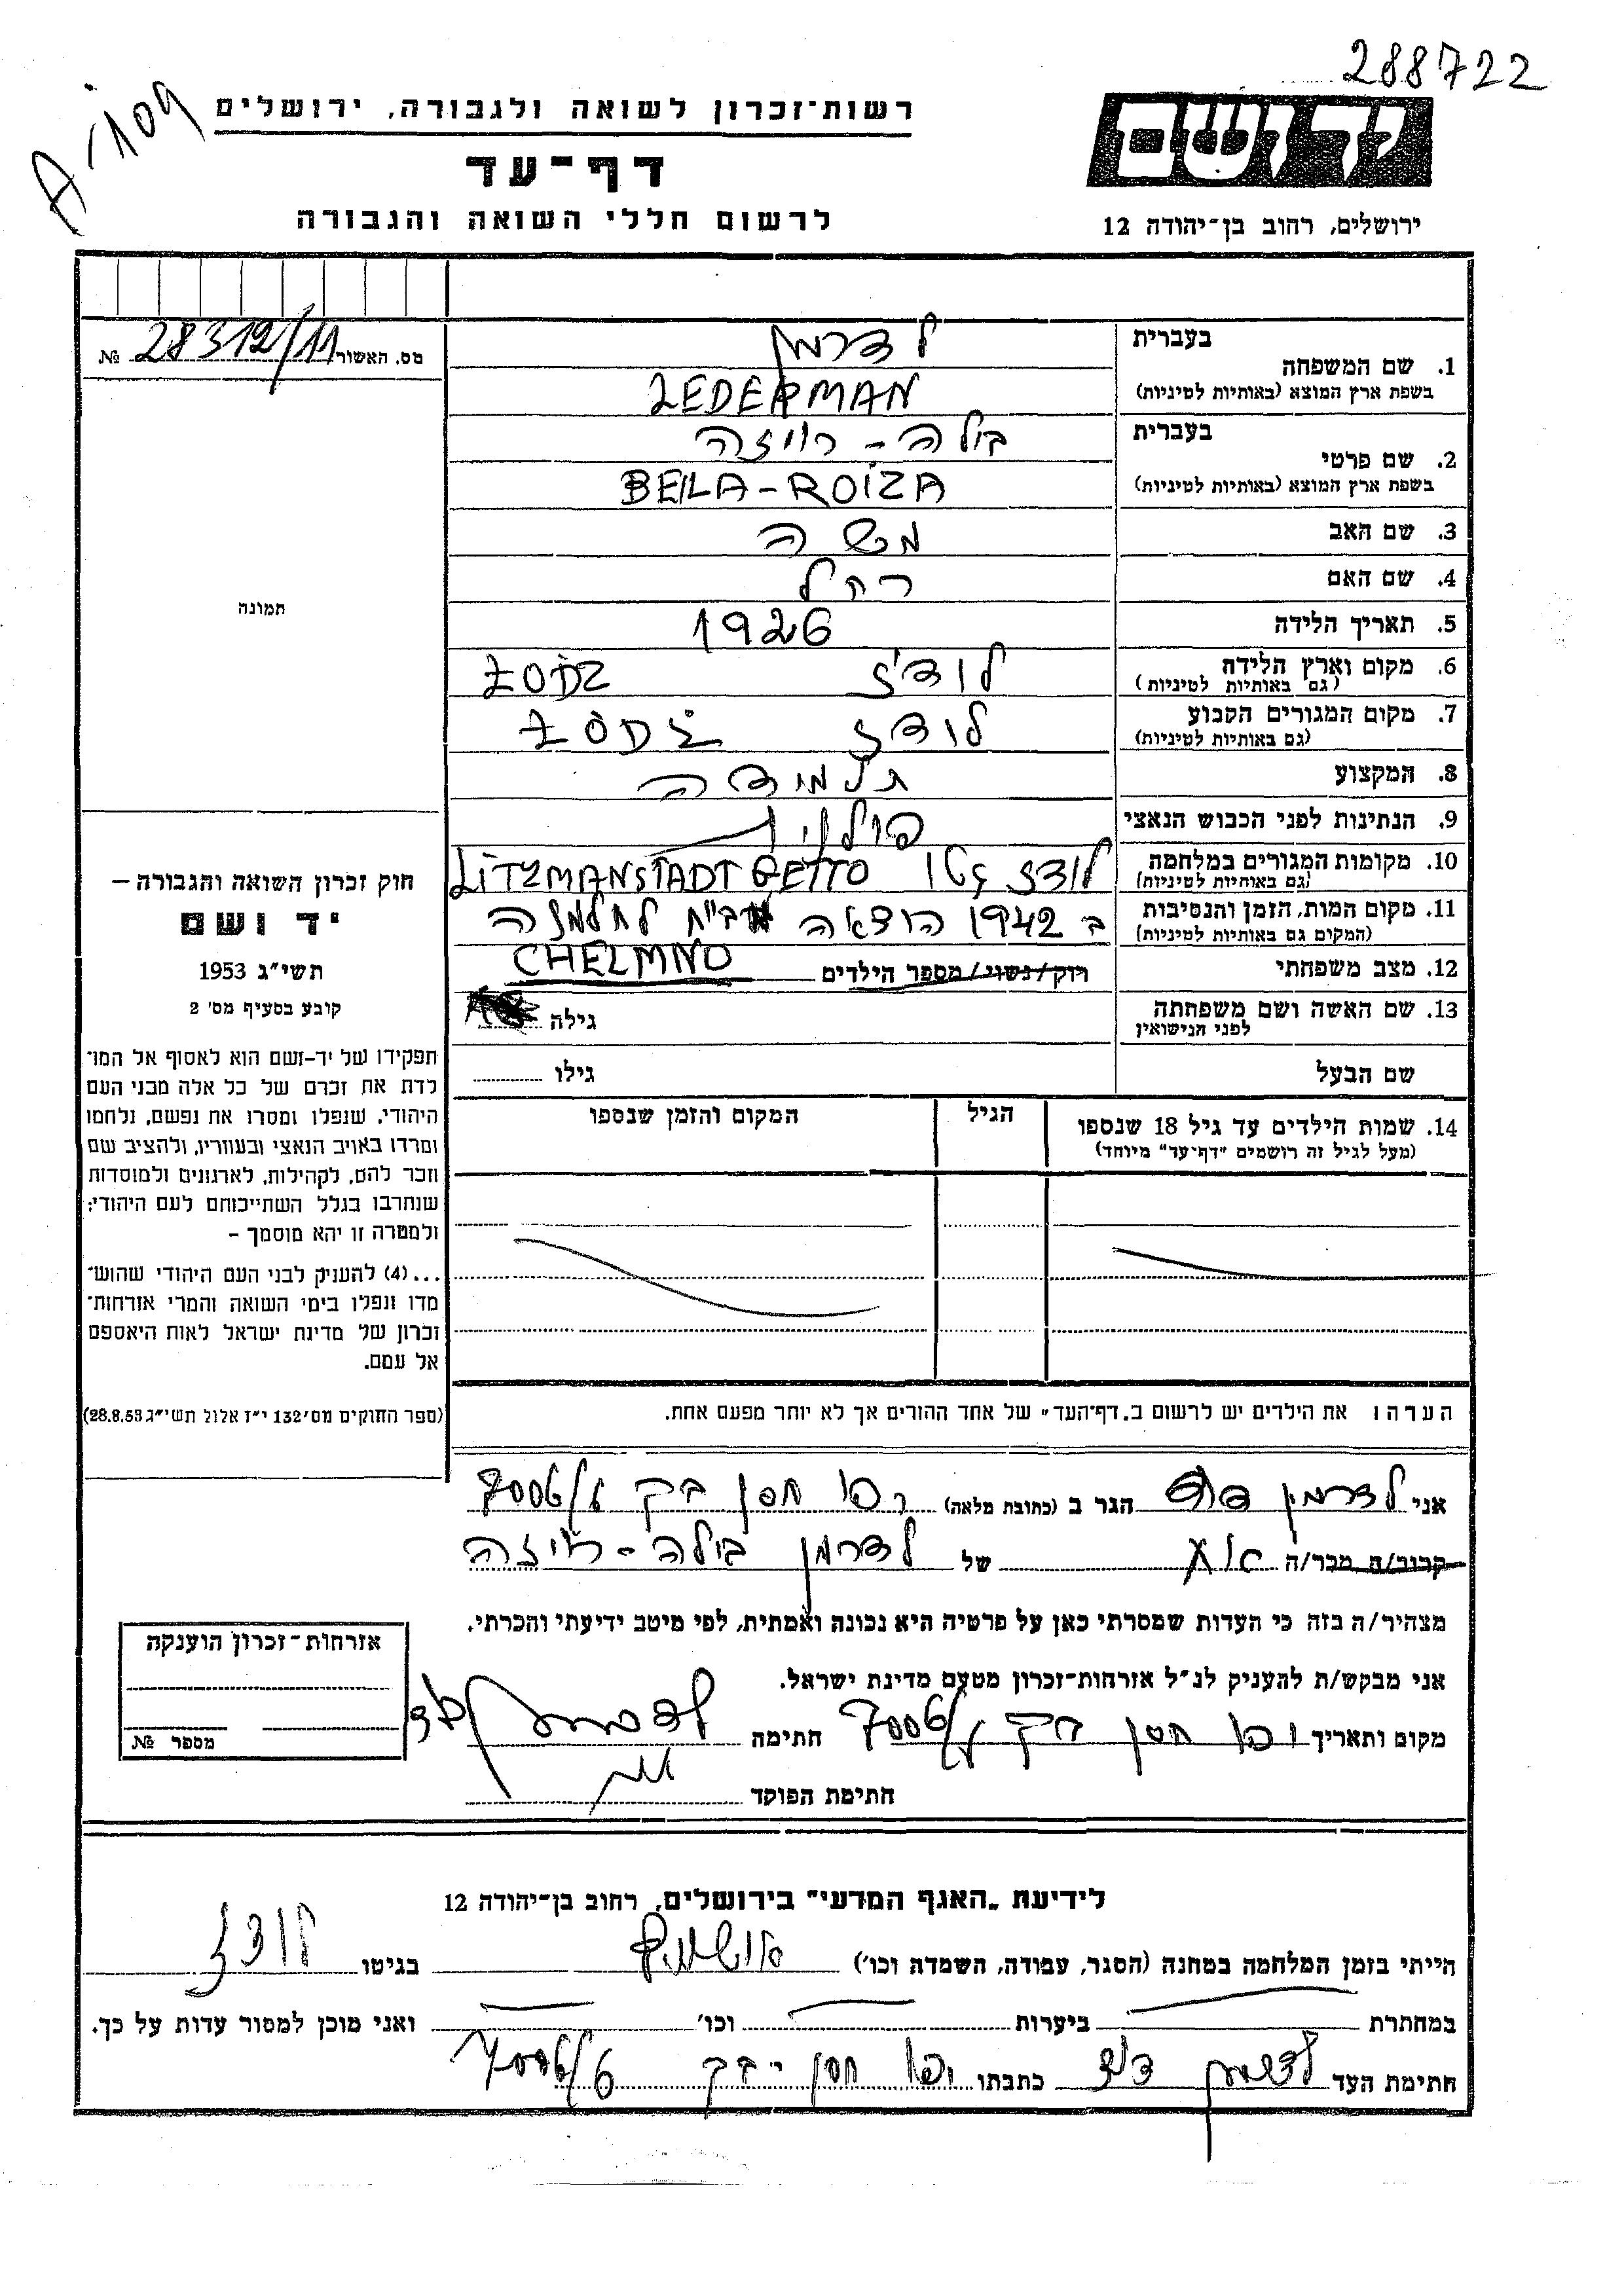 288722
A-109
רשות־זכרון לשואה ולגבורה, ירושלים
יד ושם
דף־עד
לרשום חללי השואה והגבורה
ירושלים, רחוב בן־יהודה 12
מס. האשור 28312/11 №
תמונה
חוק זכרון השואה והגבורה –
יד ושם
תשי״ג 1953
קובע בסעיף מס׳ 2
תפקידו של יד-ושם הוא לאסוף אל המו־
לדת את זכרם של כל אלה מבני העם
היהודי, שנפלו ומסרו את נפשם, נלחמו
ומרדו באויב הנאצי ובעוזריו, ולהציב שם
וזכר להם, לקהילות, לארגונים ולמוסדות
שנחרבו בגלל השתייכותם לעם היהודי;
ולמטרה זו יהא מוסמך –
...(4) להעניק לבני העם היהודי שהוש־
מדו ונפלו בימי השואה והמרי אזרחות־
זכרון של מדינת ישראל לאות היאספם
אל עמם.
(ספר החוקים מס׳ 132 י״ז אלול תשי״ג 28.8.53)
1. שם המשפחה בעברית לדרמן
בשפת ארץ המוצא (באותיות לטיניות) LEDERMAN
2. שם פרטי בעברית בילה - רויזה
בשפת ארץ המוצא (באותיות לטיניות) BEILA-ROIZA
3. שם האב משה
4. שם האם רחל
5. תאריך הלידה 1926
6. מקום וארץ הלידה לודז' ŁODZ
(גם באותיות לטיניות)
7. מקום המגורים הקבוע לודז ŁODZ
(גם באותיות לטיניות)
8. המקצוע תלמידה
9. הנתינות לפני הכבוש הנאצי פולנית
10. מקומות המגורים במלחמה לודז גטו LITZMANSTADT GETTO
(גם באותיות לטיניות)
11. מקום המות, הזמן והנסיבות ב 1942 הוצאה מבי״ח לחלמנה
(המקום גם באותיות לטיניות)
CHELMNO
12. מצב משפחתי רוק/נשוי/מספר הילדים
13. שם האשה ושם משפחתה גילה
לפני הנישואין
שם הבעל גילו
14. שמות הילדים עד גיל 18 שנספו הגיל המקום והזמן שנספו
(מעל לגיל זה רושמים "דף־עד" מיוחד)
הערה: את הילדים יש לרשום ב„דף־העד" של אחד ההורים אך לא יותר מפעם אחת.
אני לדרמן דוד הגר ב (כתובת מלאה) יפו חסן בק 7006/
קרוב/ה מכר/ה אח של לדרמן בילה - רויזה
מצהיר/ה בזה כי העדות שמסרתי כאן על פרטיה היא נכונה ואמתית, לפי מיטב ידיעתי והכרתי.
אני מבקש/ת להעניק לנ״ל אזרחות־זכרון מטעם מדינת ישראל.
מקום ותאריך יפו חסן בק 7006/ חתימה לדרמן דוד
חתימת הפוקד
אזרחות־זכרון הוענקה
מספר №
לידיעת „האגף המדעי" בירושלים, רחוב בן־יהודה 12
הייתי בזמן המלחמה במחנה (הסגר, עבודה, השמדה וכו׳) אושוויץ בגיטו לודז
במחתרת ביערות וכו׳ ואני מוכן למסור עדות על כך.
חתימת העד לדרמן דוד כתבתו יפו חסן בק 7006/6